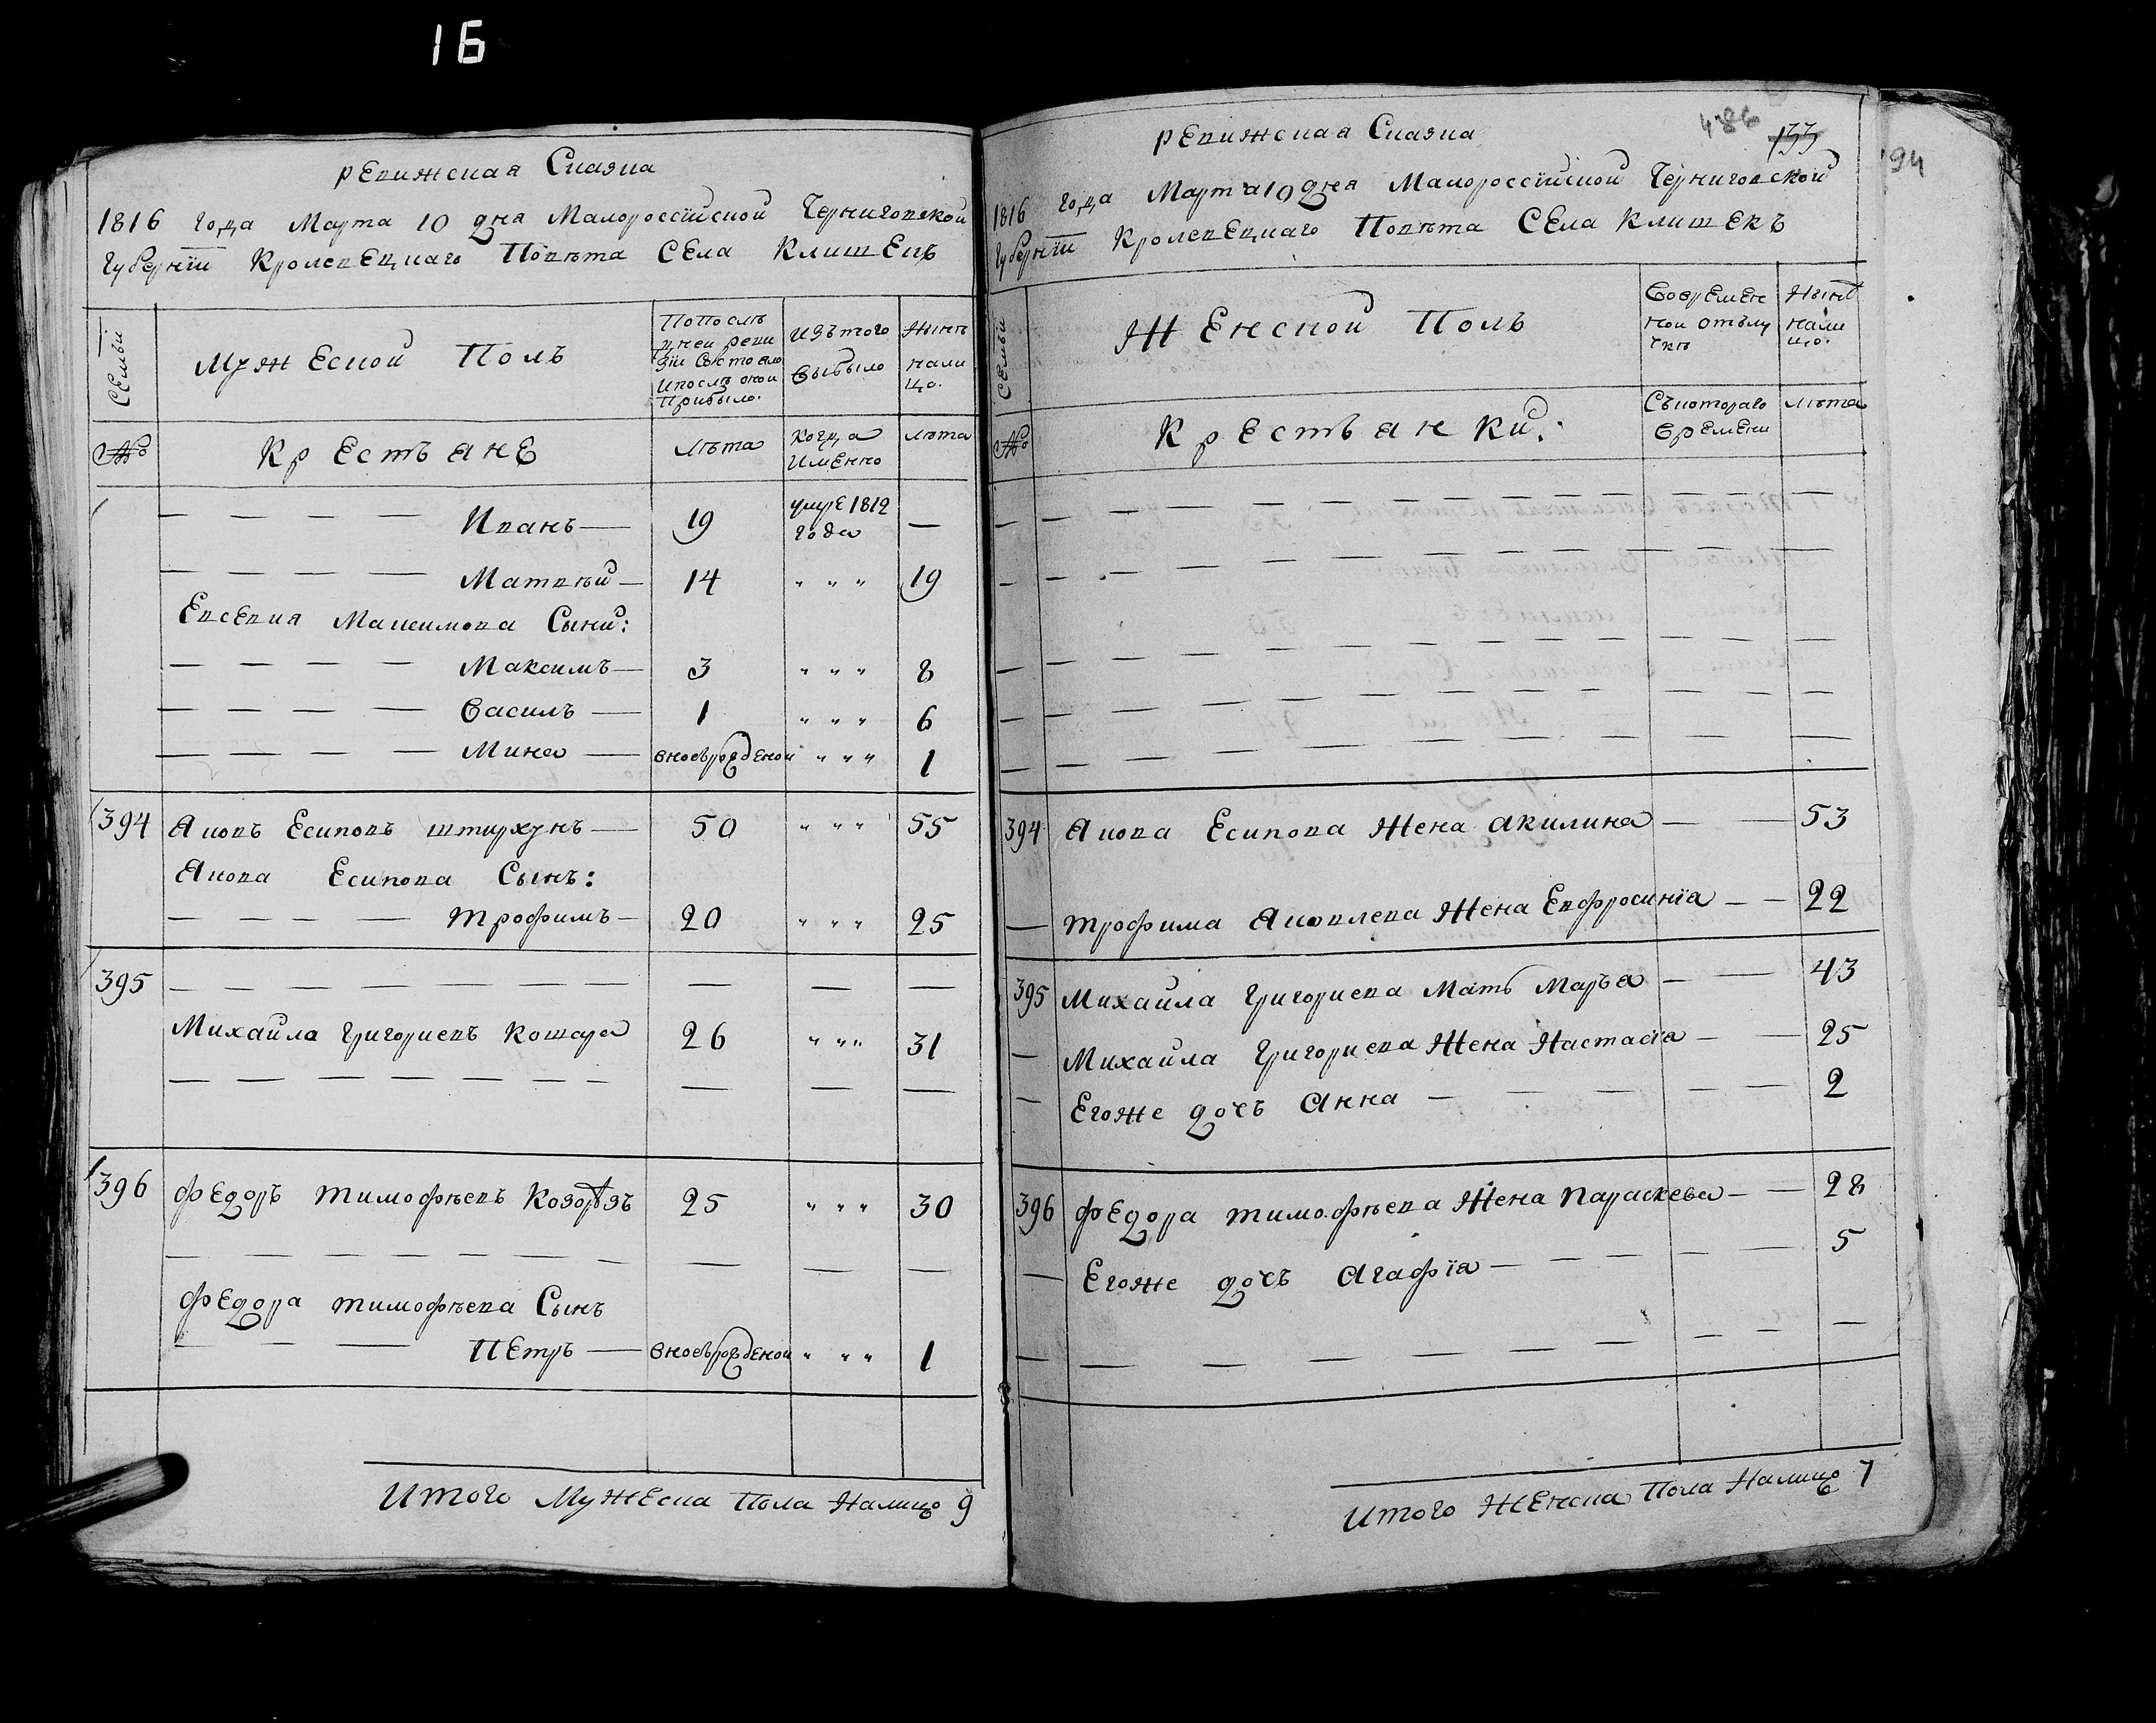 16
Ревижская Сказка
1816 года Марта 10 дня Малороссійской Черниговской
Губерніи Кролевецкаго Повѣта Села Клишекъ
Семьи
Мужеской Полъ
По после
дней реви
зіи Состояло
и послѣ оной
Прибыло.
Изъ того
выбыло
Нынѣ
нали
цо.
№
Крестьяне
Лѣта
когда
имянно
Лѣта
Иванъ 19 умре 1812
года
Матвѣй 14 " " " 19
Евсевия Максимова Сыни:
Максимъ 3 " " " 8
Василь 1 " " " 6
Мина вновьрожденой " " " 1
394 Яковъ Есиповъ штирхунъ 50 " " " 55
Якова Есипова Сынъ:
Трофимъ 20 " " " 25
395
Михайла Григориевъ Кошара 26 " " " 31
396 Федоръ Тимофѣевъ Козорѣзъ 25 " " " 30
Федора Тимофѣева Сынъ
Петръ вновьрожденой " " " 1
Итого Мужеска Пола Налицо 9
486
133
94
Ревижская Сказка
1816 года Марта 10 дня Малороссійской Черниговской
Губерніи Кролевецкаго Повѣта Села Клишекъ
Семьи
Женской Полъ
Во времен
ной отълу
чкѣ
Нынѣ
нали
цо.
№
Крестьянки:
Съкотораго
времени
Лѣта
394 Якова Есипова Жена Акилина 53
Трофима Яковлева Жена Евфросинїа 22
395 Михайла Григориева Мать Марья 43
Михайла Григориева Жена Настасїа 25
Егоже дочь Анна 2
396 Федора Тимофѣева Жена Параскева 28
Егоже дочь Агафїа 5
Итого Женска Пола Налицо 7